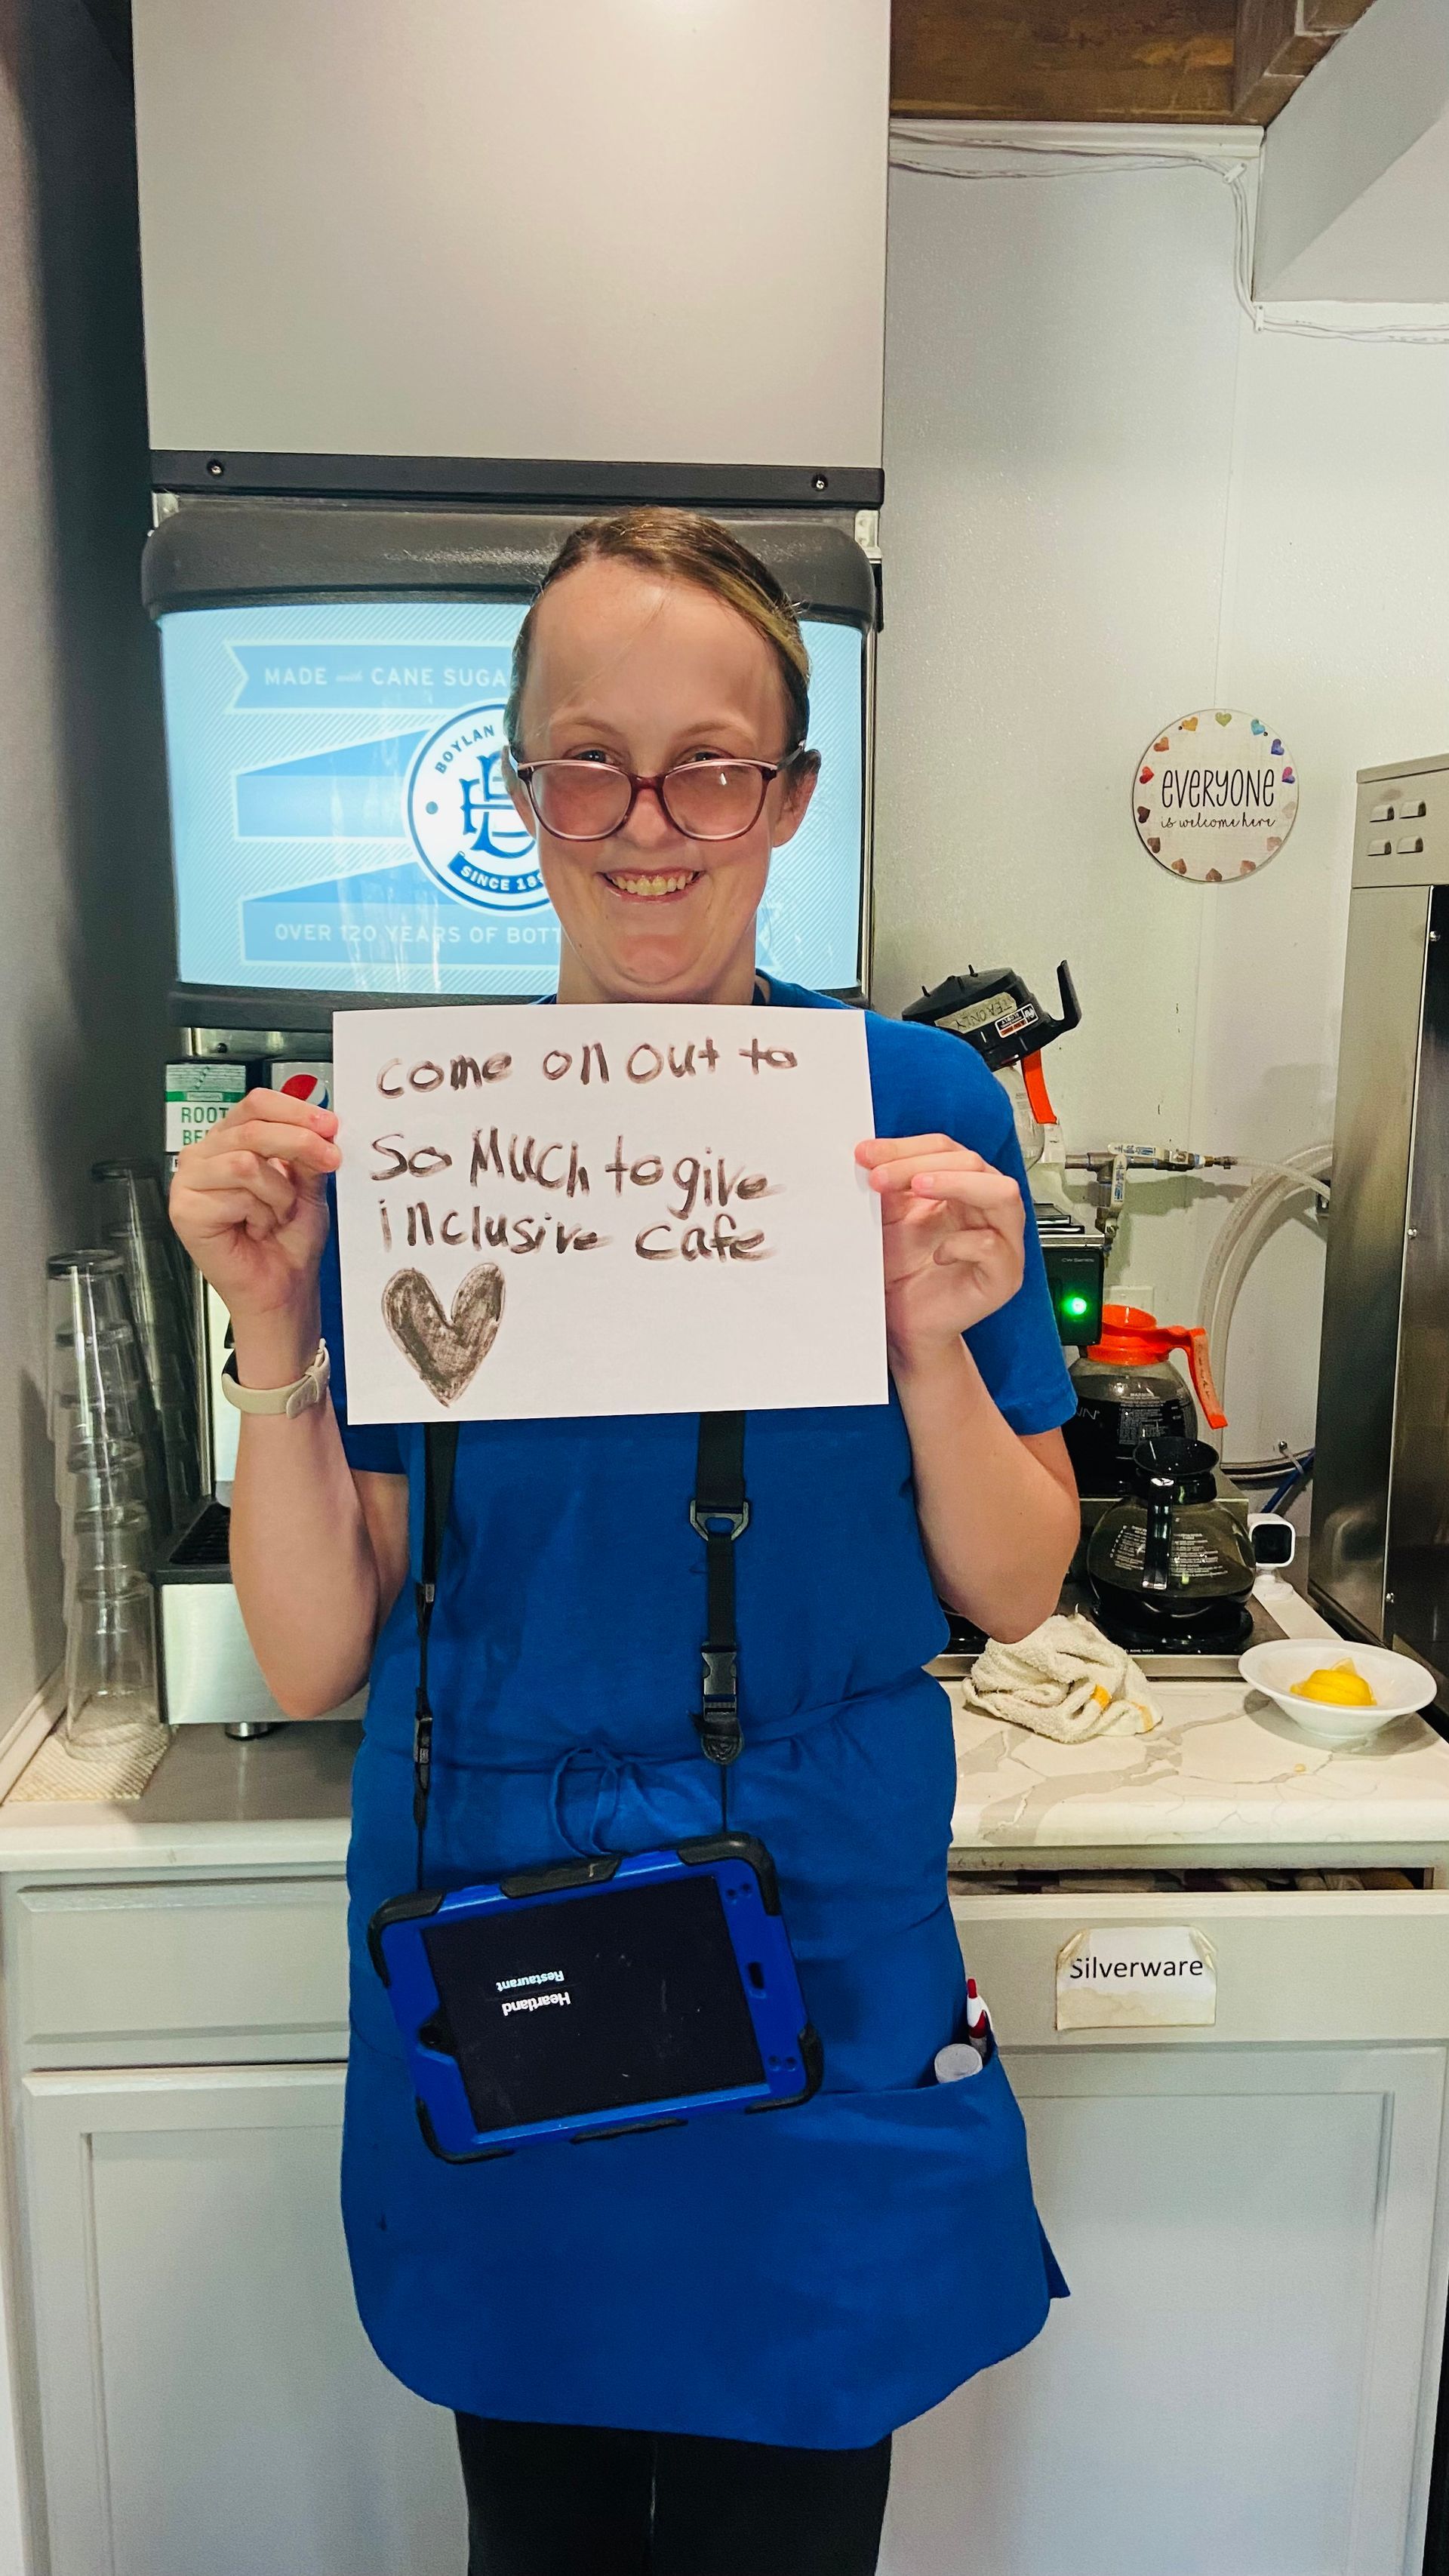 MADE with CANE SUGA
BOYLAN
SINCE 18
OVER 120 YEARS OF BOTT
EVERYONE
is welcome here
TEA ONLY
ROOT
BE
come on out to
So Much to give
inclusive cafe
Silverware
Heartland
Restaurant